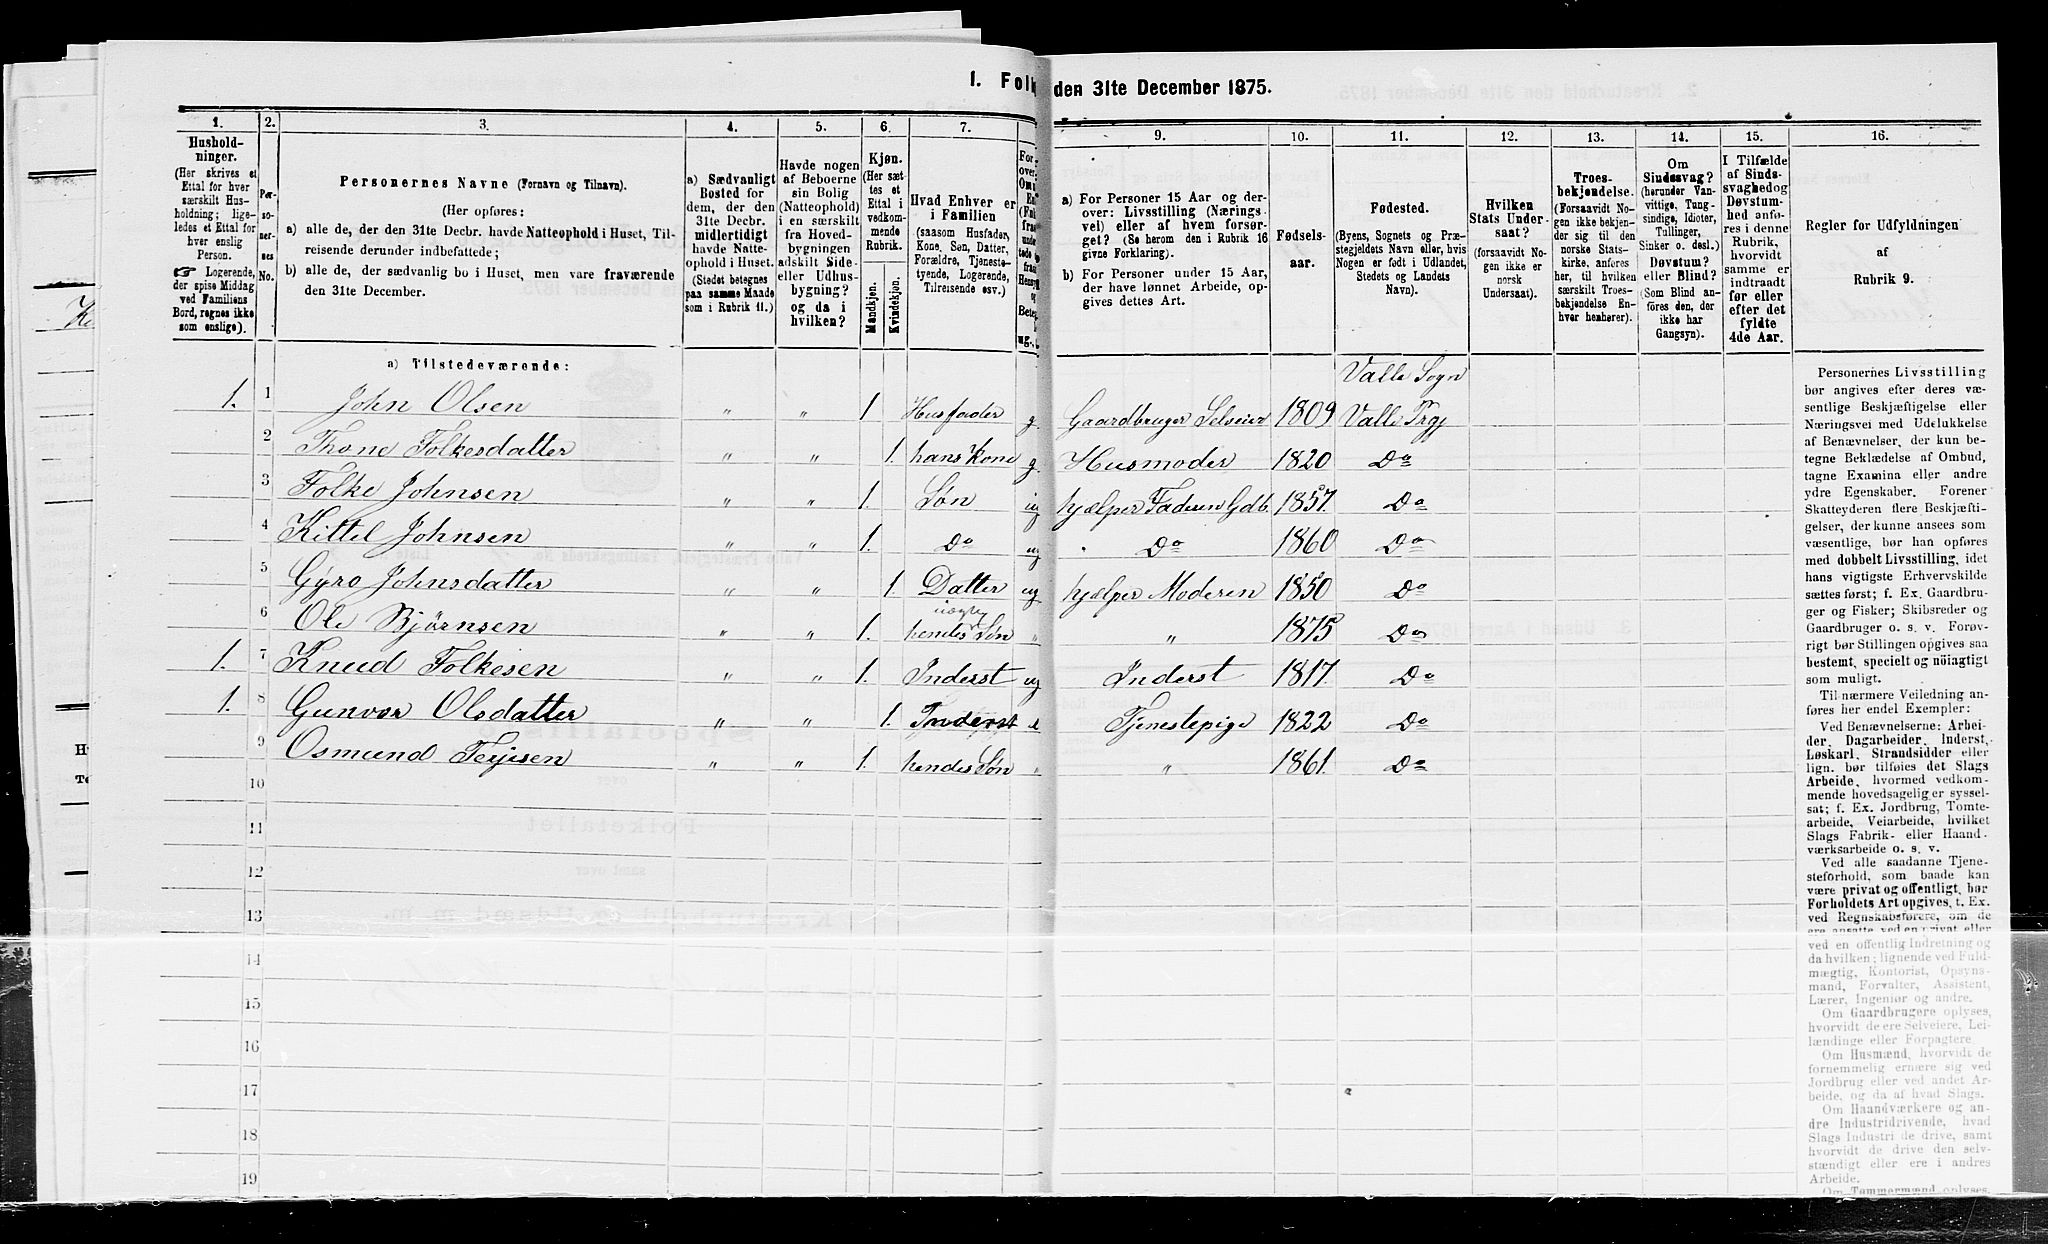 1. Folk
den 31te December 1875.
1.
Hushold-
ninger.
(Her skrives et
Ettal for hver
særskilt Hus-
holdning; lige-
ledes et Ettal for
hver enslig
Person.
☞ Logerende,
der spise Middag
ved Familiens
Bord, regnes ikke
som enslige).
2.
Per-
so-
ner-
nes
No.
3.
Personernes Navne (Fornavn og Tilnavn).
(Her opføres:
a) alle de, der den 31te Decbr. havde Natteophold i Huset, Til-
reisende derunder indbefattede;
b) alle de, der sædvanlig bo i Huset, men vare fraværende
den 31te December.
4.
a) Sædvanligt
Bosted for
dem, der den
31te Decbr.
midlertidigt
havde Natte-
ophold i Huset.
(Stedet betegnes
paa samme Maade
som i Rubrik 11.)
5.
Havde nogen
af Beboerne
sin Bolig
(Natteophold)
i en særskilt
fra Hoved-
bygningen
adskilt Side-
eller Udhus-
bygning?
og da i
hvilken?
6.
Kjøn.
(Her sæt-
tes et
Ettal i
vedkom-
mende
Rubrik.
Mandkjøn.
Kvindekjøn.
7.
Hvad Enhver er
i Familien
(saasom Husfader,
Kone, Søn, Datter,
Forældre, Tjeneste-
tyende, Logerende,
Tilreisende osv.).
9.
a) For Personer 15 Aar og der-
over: Livsstilling (Nærings-
vei) eller af hvem forsør-
get? (Se herom den i Rubrik 16
givne Forklaring).
b) For Personer under 15 Aar,
der have lønnet Arbeide, op-
gives dettes Art.
10.
Fødsels-
aar.
11.
Fødested.
(Byens, Sognets og Præ-
stegjeldets Navn eller, hvis
Nogen er født i Udlandet,
Stedets og Landets
Navn).
12.
Hvilken
Stats Under-
saat?
(forsaavidt No-
gen ikke er
norsk
Undersaat).
13.
Troes-
bekjendelse.
(Forsaavidt No-
gen ikke bekjen-
der sig til den
norske Stats-
kirke, anføres
her, til hvilken
særskilt Troes-
bekjendelse En-
hver henhører).
14.
Om
Sindssvag?
(herunder Van-
vittige, Tung-
sindige, Idioter,
Tullinger,
Sinker o. desl.)
Døvstum?
eller Blind?
(Som Blind an-
føres den, der
ikke har
Gangsyn).
15.
I Tilfælde
af Sinds-
svaghed og
Døvstum-
hed anfø-
res i denne
Rubrik,
hvorvidt
samme er
indtraadt
før eller
efter det
fyldte
4de Aar.
16.
Regler for Udfyldningen
af
Rubrik 9.
a) Tilstedeværende:
Valle Sogn
1. 1 John Olsen „ „ 1. Husfader g. Gaardbruger Selveier 1809 Valle Prgj
2 Thone Folkesdatter „ „ 1. hans Kone g. Husmoder 1820 Do
3 Folke Johnsen „ „ 1. Søn ug hjælper Faderen Gdb. 1857. Do
4 Kittel Johnsen „ „ 1. Do ug Do 1860 Do
5 Gyro Johnsdatter „ „ 1. Datter ug hjælper Moderen 1850 Do
uægte
6 Ole Bjørnsen „ „ 1. hendes Søn „ „ 1875 Do
1. 7 Knud Folkesen „ „ 1. Inderst ug Inderst 1817. Do
1. 8 Gunvor Olsdatter „ „ 1. Inderst e Tjenestepige 1822 Do
9 Osmund Terjesen „ „ 1. hendes Søn „ „ 1861. Do
10
11
12
13
14
15
16
17
18
19
Personernes Livsstilling
bør angives efter deres væ-
sentlige Beskjæftigelse eller
Næringsvei med Udelukkelse
af Benævnelser, der kun be-
tegne Beklædelse af Ombud,
tagne Examina eller andre
ydre Egenskaber. Forener
Skatteyderen flere Beskjæfti-
gelser, der kunne ansees som
væsentlige, bør han opføres
med dobbelt Livsstilling, idet
hans vigtigste Erhvervskilde
sættes først; f. Ex. Gaardbru-
ger og Fisker; Skibsreder og
Gaardbruger o. s. v. Forøv-
rigt bør Stillingen opgives saa
bestemt, specielt og nöiagtigt
som muligt.
Til nærmere Veiledning an-
føres her endel Exempler:
Ved Benævnelserne: Arbei-
der, Dagarbeider, Inderst,
Løskarl, Strandsidder eller
lign. bør tilføies det Slags
Arbeide, hvormed vedkom-
mende hovedsagelig er syssel-
sat; f. Ex. Jordbrug, Tomte-
arbeide, Veiarbeide, hvilket
Slags Fabrik- eller Haand-
værksarbeide o. s. v.
Ved alle saadanne Tjene-
steforhold, som baade kan
være privat og offentligt, bør
Forholdets Art opgives, t. Ex.
ved Regnskabsførere, om de
ere ansatte ved en privat eller
ved en offentlig Indretning og
da hvilken; lignende ved Fuld-
mægtig, Kontorist, Opsyns-
mand, Forvalter, Assistent,
Lærer, Ingeniør og andre.
Om Gaardbrugere oplyses,
hvorvidt de ere Selveiere, Lei-
lændinge eller Forpagtere.
Om Husmænd, hvorvidt de
fornemmelig ernære sig ved
Jordbrug eller ved andet Ar-
beide, og da af hvad Slags.
Om Haandværkere og an-
dre Industridrivende, hvad
Slags Industri de drive, samt
hvorvidt de drive den selv-
stændigt eller ere i andres
Arbeide.
Om Tømmermænd oplyses,